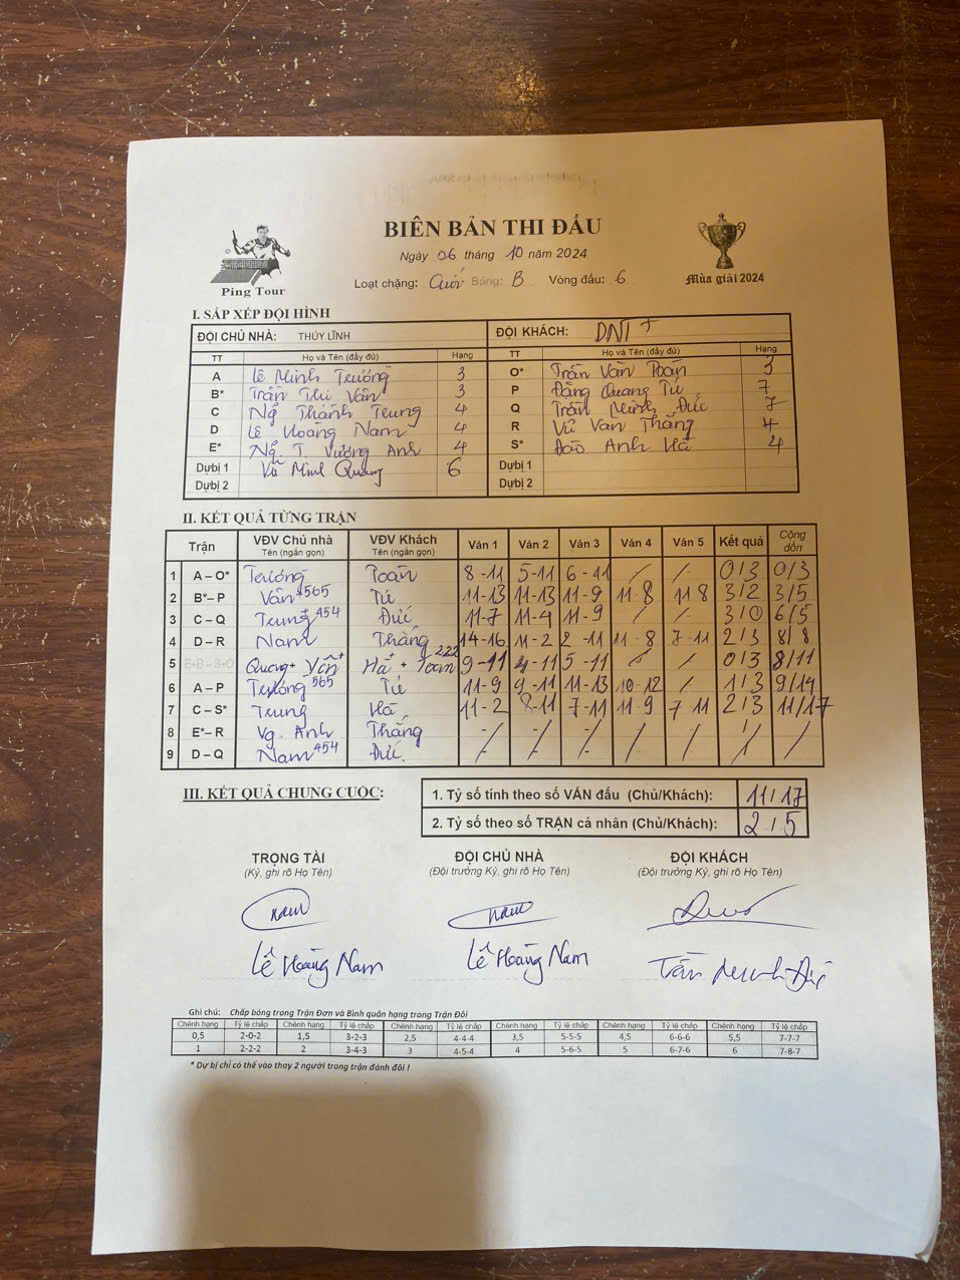 BIÊN BẢN THI ĐẤU
Ngày 06 tháng 10 năm 2024
Ping Tour
Loạt chặng: Cuối Bảng: B Vòng đấu: 6
Mùa giải 2024
I. SẮP XẾP ĐỘI HÌNH
ĐỘI CHỦ NHÀ: THÚY LĨNH ĐỘI KHÁCH: DNT+
TT Họ và Tên (đầy đủ) Hạng TT Họ và Tên (đầy đủ) Hạng
A Lê Minh Trường 3 O* Trần Văn Toàn 3
B* Trần Thu Vân 3 P Đặng Quang Tú 7
C Ng Thành Trung 4 Q Trần Minh Đức 7
D Lê Hoàng Nam 4 R Vũ Văn Thắng 4
E* Ng. T. Vương Anh 4 S* Đào Anh Hà 4
Dự bị 1 Vũ Minh Quang 6 Dự bị 1
Dự bị 2 Dự bị 2
II. KẾT QUẢ TỪNG TRẬN
Trận VĐV Chủ nhà VĐV Khách Ván 1 Ván 2 Ván 3 Ván 4 Ván 5 Kết quả Cộng dồn
Tên (ngắn gọn) Tên (ngắn gọn)
1 A – O* Trường Toàn 8-11 5-11 6-11 / / 0/3 0/3
2 B* – P Vân +565 Tú 11-13 11-13 11-9 11-8 11 8 3/2 3/5
3 C – Q Trung +454 Đức 11-7 11-4 11-9 / / 3/0 6/5
4 D – R Nam Thắng 14-16 11-2 2-11 11-8 7-11 2/3 8/8
5 Quang + Vân+ Hà + Toàn 222 9-11 4-11 5-11 / / 0/3 8/11
6 A – P Trường 565 Tú 11-9 9-11 11-13 10-12 / 1/3 9/14
7 C – S* Trung Hà 11-2 8-11 7-11 11 9 7 11 2/3 11/17
8 E* – R Vg. Anh Thắng
9 D – Q Nam 454 Đức.
III. KẾT QUẢ CHUNG CUỘC:
1. Tỷ số tính theo số VÁN đấu (Chủ/Khách): 11/17
2. Tỷ số theo số TRẬN cá nhân (Chủ/Khách): 2/5
TRỌNG TÀI ĐỘI CHỦ NHÀ ĐỘI KHÁCH
(Ký, ghi rõ Họ Tên) (Đội trưởng Ký, ghi rõ Họ Tên) (Đội trưởng Ký, ghi rõ Họ Tên)
Nam Nam Đức
Lê Hoàng Nam Lê Hoàng Nam Trần Minh Đức
Ghi chú: Chấp bóng trong Trận Đơn và Bình quân hạng trong Trận Đôi
Chênh hạng Tỷ lệ chấp Chênh hạng Tỷ lệ chấp Chênh hạng Tỷ lệ chấp Chênh hạng Tỷ lệ chấp Chênh hạng Tỷ lệ chấp Chênh hạng Tỷ lệ chấp
0,5 2-0-2 1,5 3-2-3 2,5 4-4-4 3,5 5-5-5 4,5 6-6-6 5,5 7-7-7
1 2-2-2 2 3-4-3 3 4-5-4 4 5-6-5 5 6-7-6 6 7-8-7
* Dự bị chỉ có thể vào thay 2 người trong trận đánh đôi !